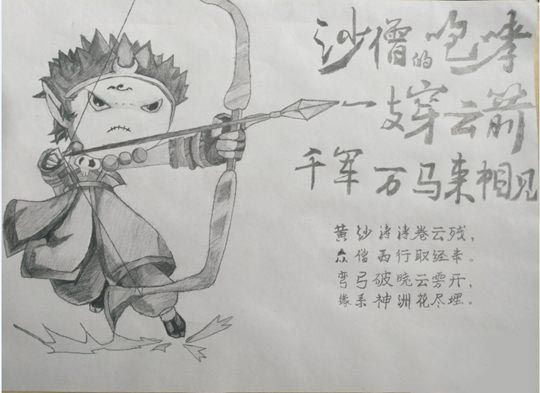 沙僧的咆哮
一支穿云箭
千军万马来相见
黄沙涛涛卷云残，
众僧西行取经来。
弯弓破晓云雾开，
缘系神洲花尽埋。